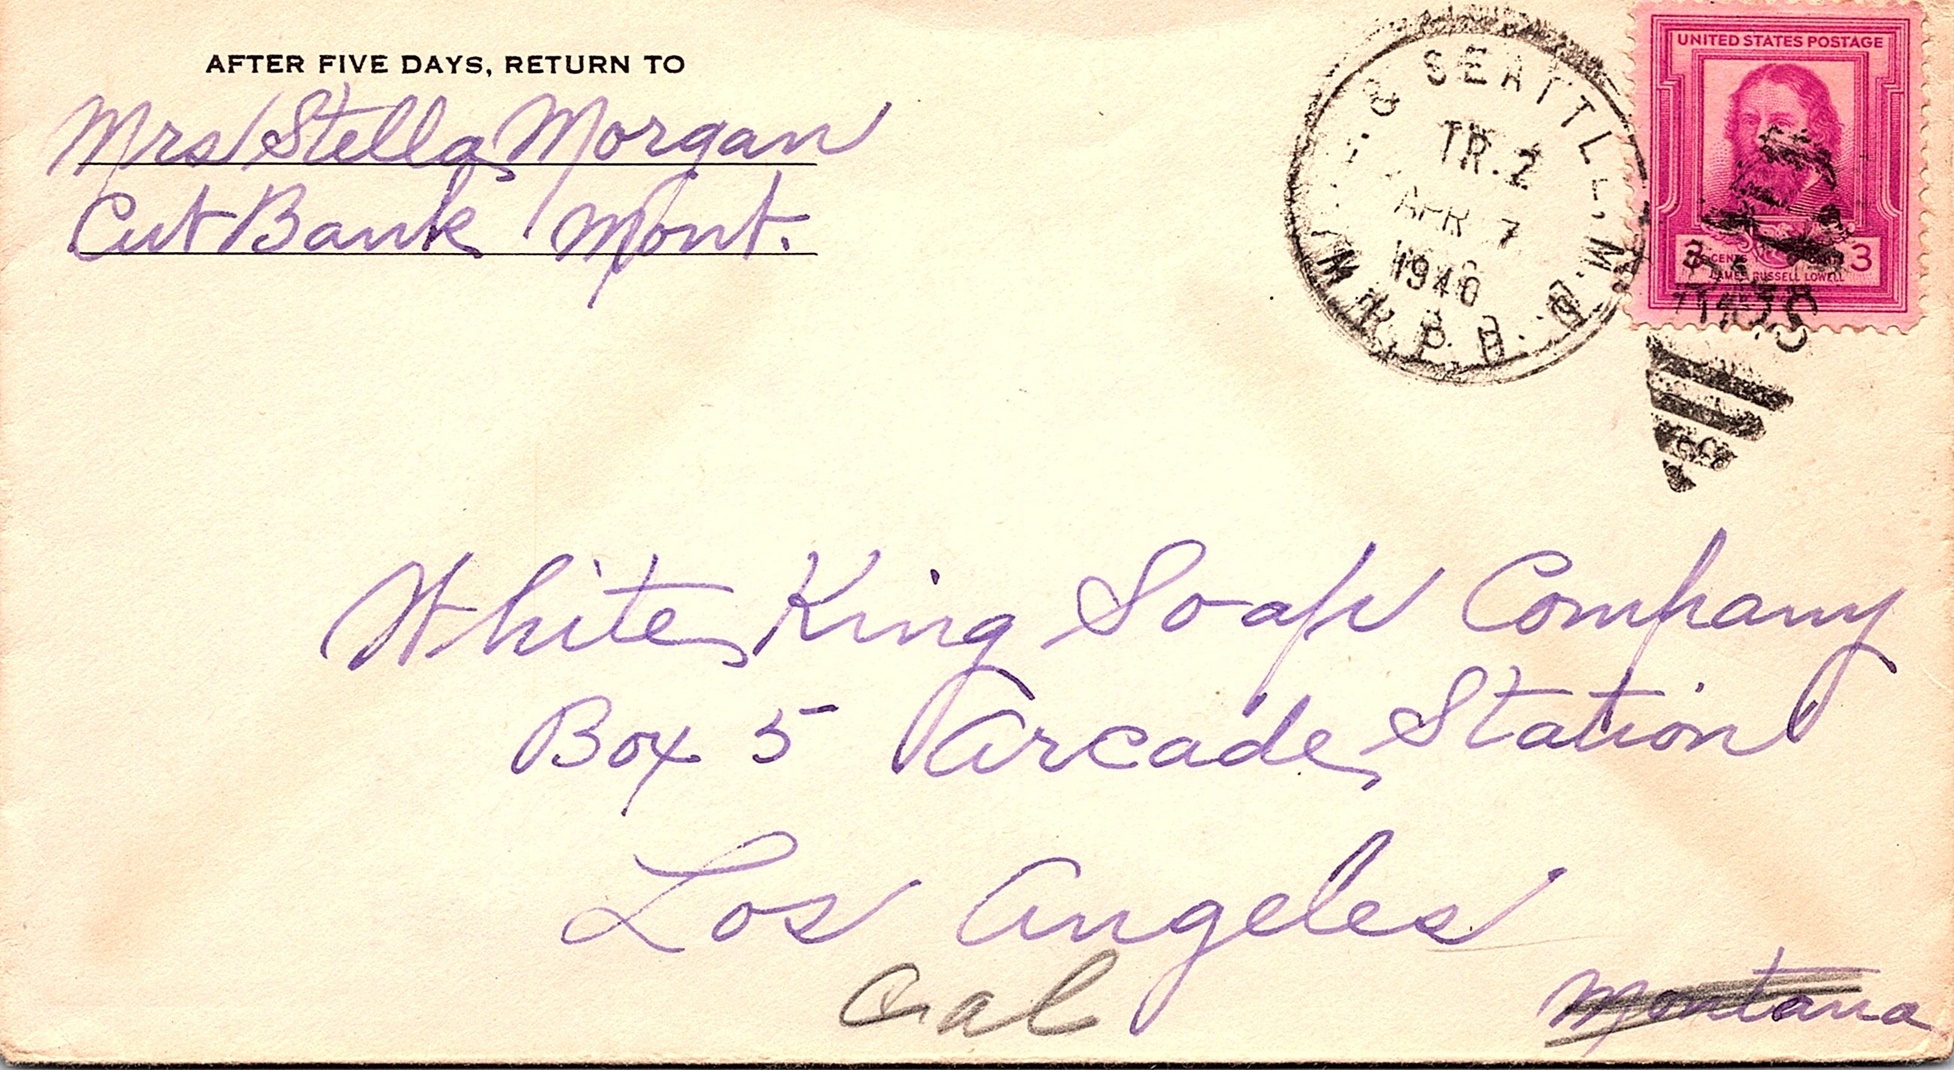 AFTER FIVE DAYS, RETURN TO
Mrs Stella Morgan
Cut Bank Mont.
SEATTLE, M.D.
TR. 2
APR 7
1946
R.P.O.
UNITED STATES POSTAGE
3 CENTS 3
JAMES RUSSELL LOWELL
R.M.S.
White King Soap Company
Box 5 Arcade Station
Los Angeles
Cal
Montana